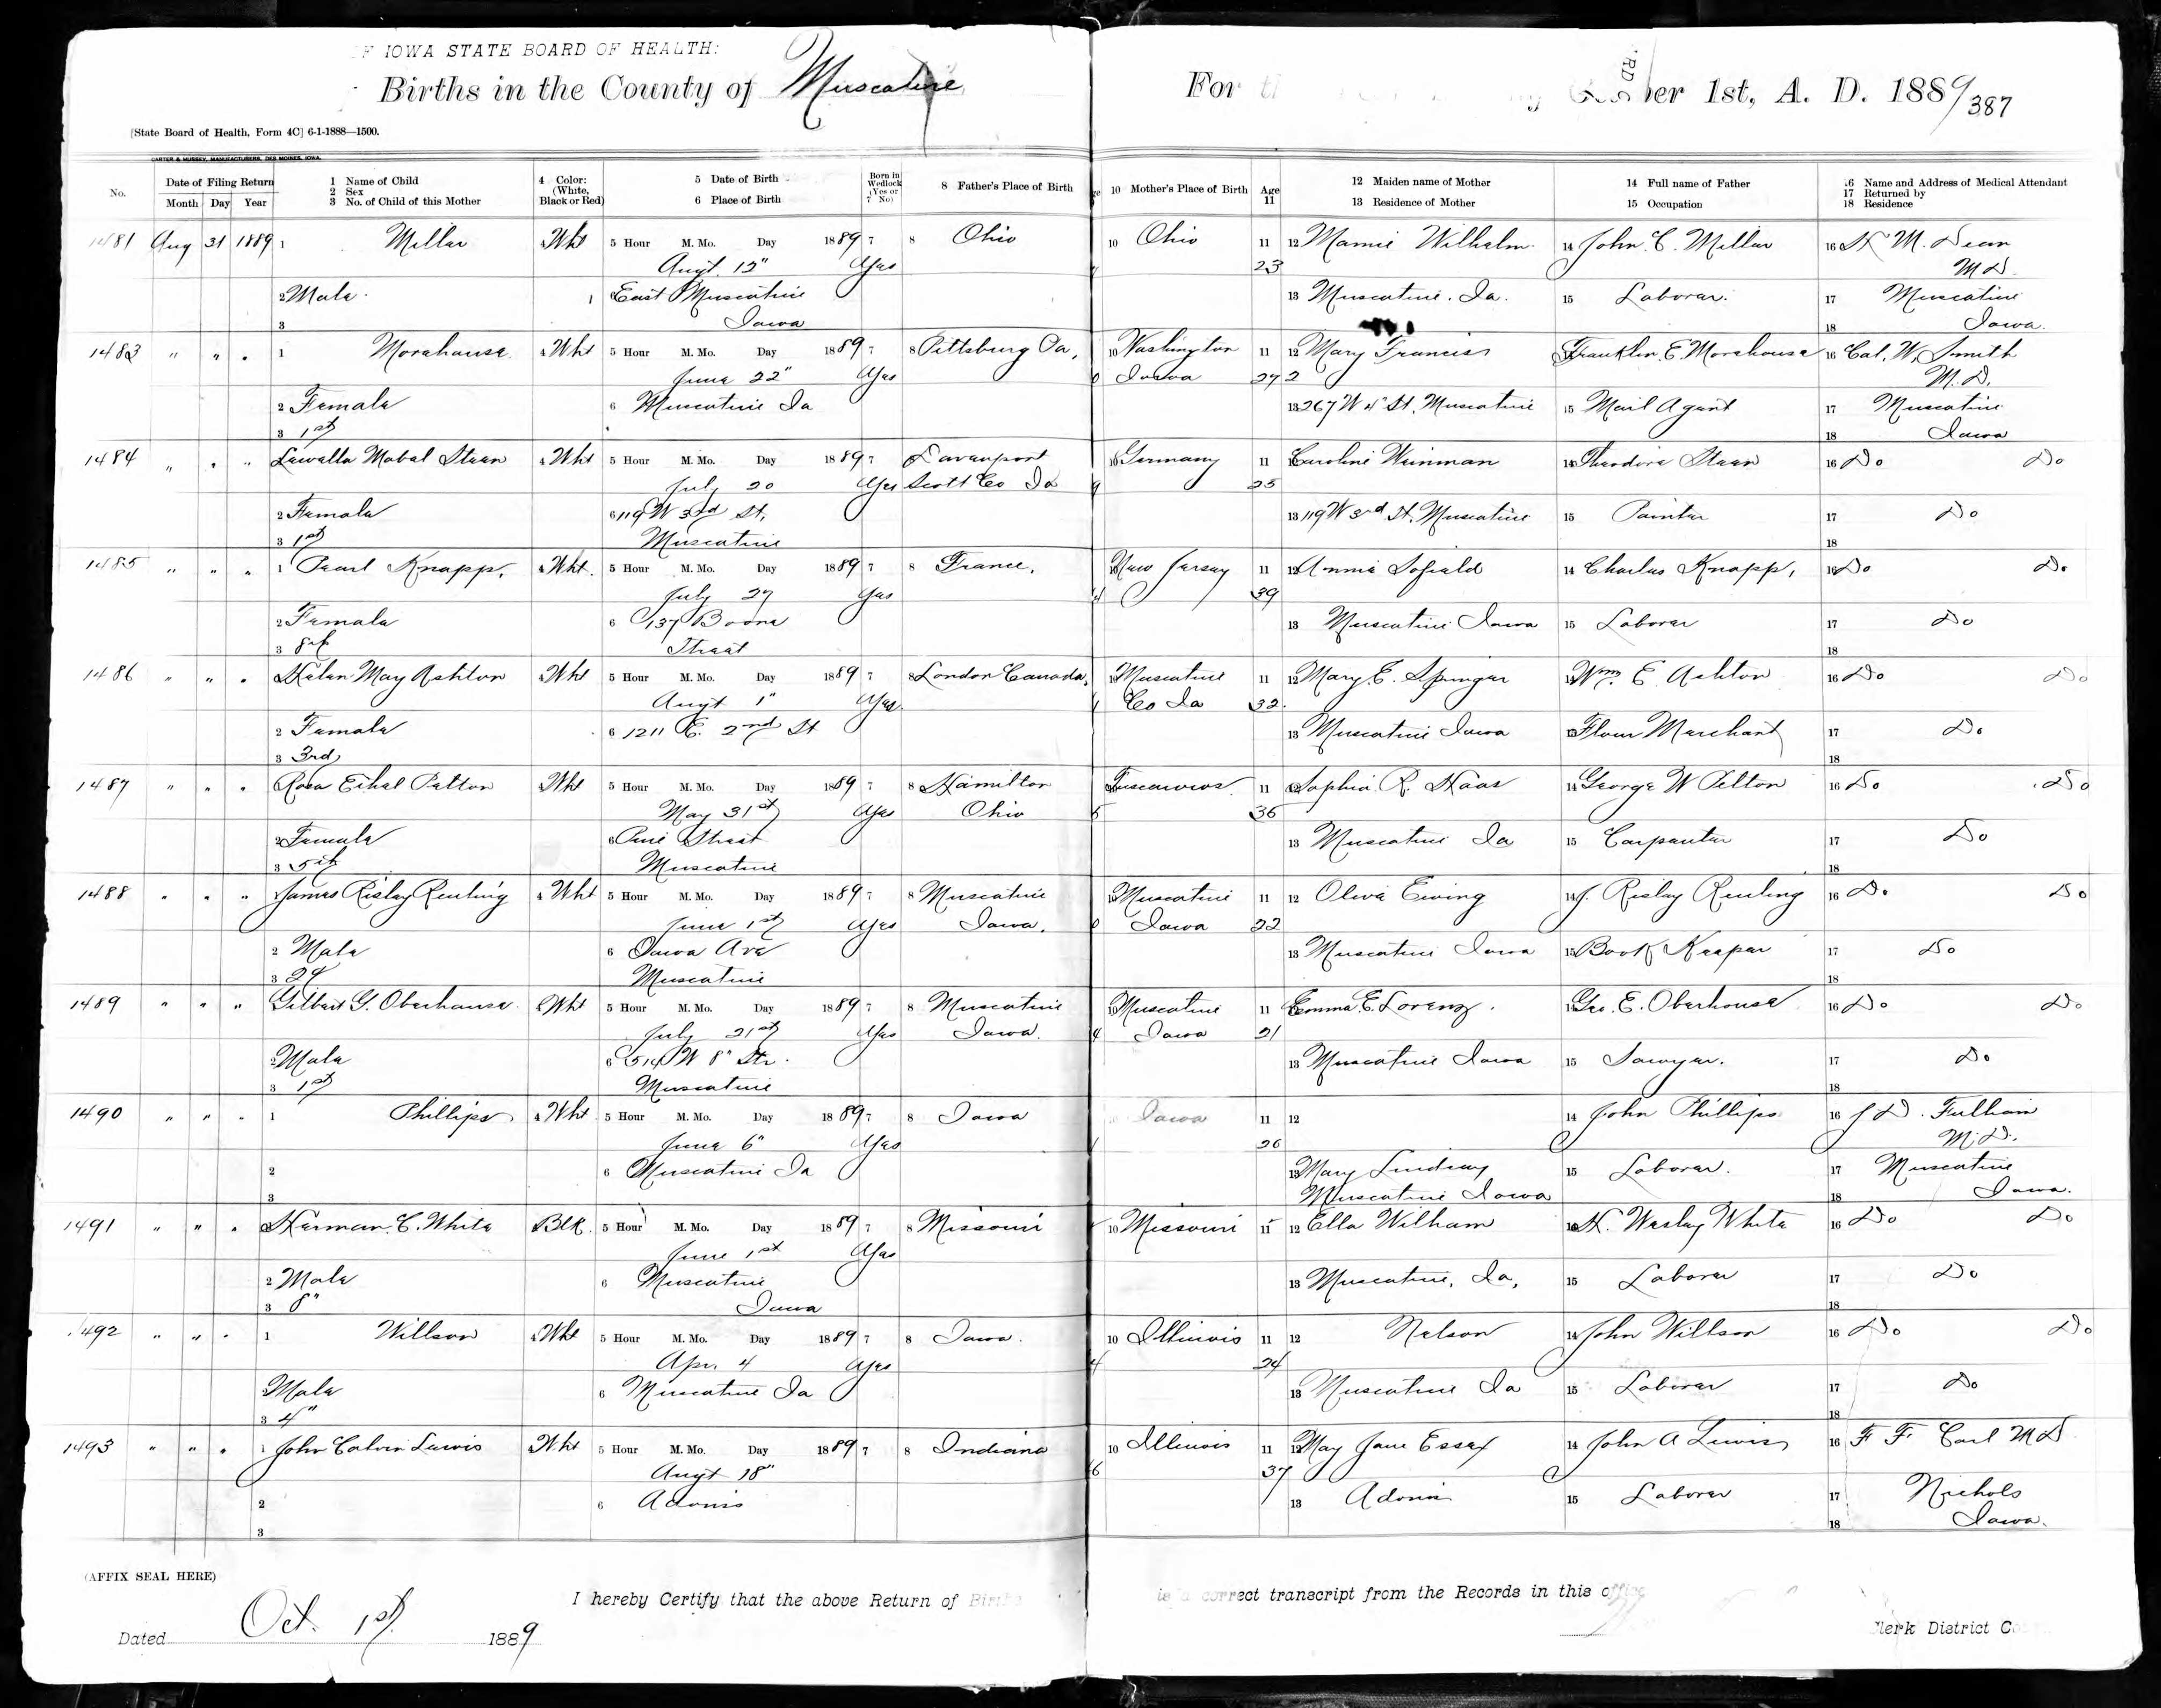 F IOWA STATE BOARD OF HEALTH:
Births in the County of Muscatine
For ber 1st, A. D. 1889 / 387
[State Board of Health, Form 4C] 6-1-1888—1500.
CARTER & HUSSEY, MANUFACTURERS, DES MOINES, IOWA.
No. Date of Filing Return Month Day Year 1 Name of Child 2 Sex 3 No. of Child of this Mother 4 Color: (White, Black or Red) 5 Date of Birth 6 Place of Birth Born in Wedlock (Yes or 7 No) 8 Father's Place of Birth 10 Mother's Place of Birth Age 11 12 Maiden name of Mother 13 Residence of Mother 14 Full name of Father 15 Occupation 16 Name and Address of Medical Attendant 17 Returned by 18 Residence
1481 Aug 31 1889 1 Miller 4 Wht 5 Hour M. Mo. Day 1889 7 8 Ohio 10 Ohio 11 12 Mamie Wilhelm 14 John C. Miller 16 M. Dean
Augt 12" Yes 23 M D.
2 Male. East Muscatine 13 Muscatine. Ia. 15 Laborer. 17 Muscatine
3 Iowa 18 Iowa.
1483 " " " 1 Morehouse 4 Wht 5 Hour M. Mo. Day 1889 7 8 Pittsburg Pa, 10 Washington 11 12 Mary Francis Franklin E. Morehouse 16 Cal. W. Smith
June 22" Yes Iowa 27 2 M. D.
2 Female 6 Muscatine Ia 13 267 W 4" St, Muscatine 15 Mail Agent 17 Muscatine
3 1st 18 Iowa
1484 " " " Lewella Mabel Steen 4 Wht 5 Hour M. Mo. Day 1889 7 Davenport 10 Germany 11 Caroline Weinman 14 Theodore Steen 16 Do Do
July 20 Yes Scott Co Ia 25
2 Female 6 119 W 3rd St, 13 119 W 3rd St, Muscatine 15 Painter 17 Do
3 1st Muscatine 18
1485 " " " 1 Pearl Knapp, 4 Wht. 5 Hour M. Mo. Day 1889 7 8 France, New Jersey 11 12 Annie Sofield 14 Charles Knapp, 16 Do Do
July 27 Yes 39
2 Female 6 137 Boone 13 Muscatine Iowa 15 Laborer 17 Do
3 8th Street 18
1486 " " " Helen May Ashton 4 Wht 5 Hour M. Mo. Day 1889 7 8 London Canada, 10 Muscatine 11 12 Mary E. Springer Wm. E. Ashton 16 Do Do
Augt 1" Yes. Co Ia 32.
2 Female 6 1211 E. 2nd St 13 Muscatine Iowa Flour Merchant 17 Do
3 3rd 18
1487 " " " Rosa Ethel Pelton Wht 5 Hour M. Mo. Day 1889 7 8 Hamilton 11 Sophia R. Haas 14 George W Pelton 16 Do Do
May 31st Yes Ohio 36
2 Female 6 Pine Street 13 Muscatine Ia 15 Carpenter 17 Do
3 5th Muscatine 18
1488 " " " James Risley Reuling 4 Wht 5 Hour M. Mo. Day 1889 7 8 Muscatine 10 Muscatine 11 12 Olive Ewing 14 J. Risley Reuling 16 Do Do
June 1st Yes Iowa. Iowa 22
2 Male 6 Iowa Ave 13 Muscatine Iowa 15 Book Keeper 17 Do
3 2d Muscatine 18
1489 " " " Gilbert G. Oberhouse. Wht 5 Hour M. Mo. Day 1889 7 8 Muscatine 10 Muscatine 11 Emma E. Lorenz. Geo. E. Oberhouse 16 Do Do
July 21st Yes Iowa. Iowa 21
2 Male 6 514 W 8" Str. 13 Muscatine Iowa 15 Sawyer. 17 Do
3 1st Muscatine 18
1490 " " " 1 Phillips 4 Wht 5 Hour M. Mo. Day 1889 7 8 Iowa Iowa 11 12 14 John Phillips 16 J D. Fulliam
June 6" Yes 26 M. D.
2 6 Muscatine Ia 13 Mary Lindsay 15 Laborer. 17 Muscatine
3 Muscatine Iowa 18 Iowa.
1491 " " " Herman. C. White Blk. 5 Hour M. Mo. Day 1889 7 8 Missouri 10 Missouri 11 12 Ella Wilham H. Wesley White 16 Do Do
June 1st Yes
2 Male 6 Muscatine 13 Muscatine, Ia, 15 Laborer 17 Do
3 8" Iowa 18
1492 " " " 1 Willson 4 Wht 5 Hour M. Mo. Day 1889 7 8 Iowa. 10 Illinois 11 12 Nelson 14 John Willson 16 Do Do
Apr. 4 Yes 4 24
2 Male 6 Muscatine Ia 13 Muscatine Ia 15 Laborer 17 Do
3 4" 18
1493 " " " 1 John Calvin Lewis Wht 5 Hour M. Mo. Day 1889 7 8 Indiana 10 Illinois 11 12 May Jane Essex 14 John A Lewis 16 F. F. Carl M D
Augt 18" 6 37
2 6 Adonis 13 Adonis 15 Laborer 17 Nichols
3 18 Iowa.
(AFFIX SEAL HERE)
I hereby Certify that the above Return of Births is a correct transcript from the Records in this office
Dated Oct. 1st 1889 Clerk District Co